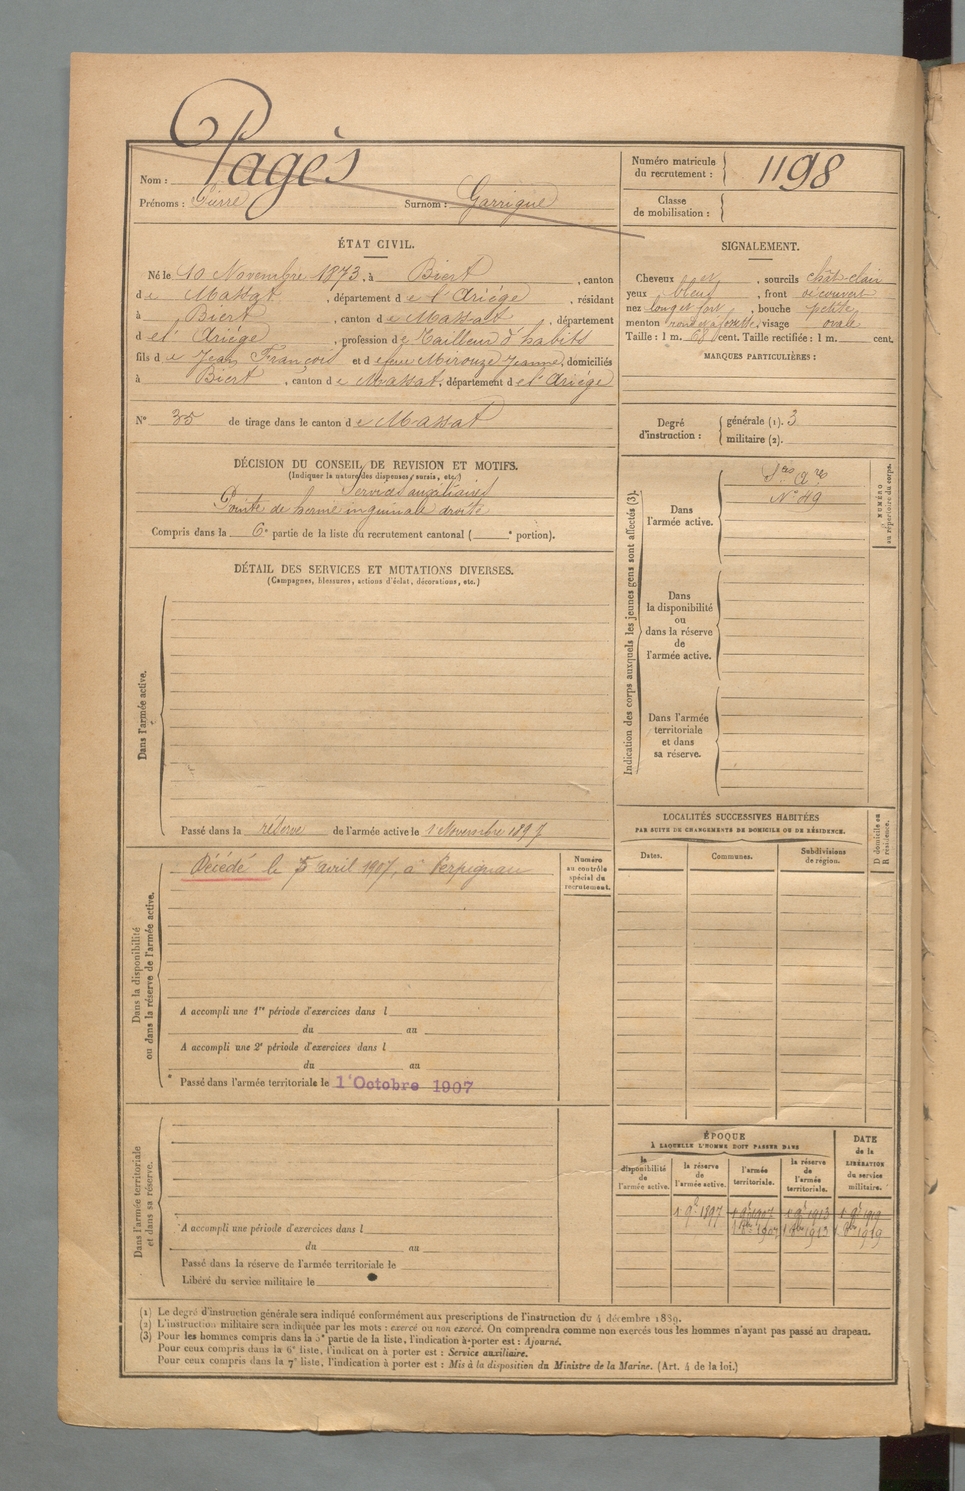 Nom : Pagès
Prénoms : Pierre Surnom : Garrigue
Numéro matricule du recrutement : 1198
Classe de mobilisation :
ÉTAT CIVIL.
Né le 10 Novembre 1873, à Biert, canton
de Massat, département de l'Ariége, résidant
à Biert, canton de Massat, département
de l'Ariége, profession de Tailleur d'habits
fils de Jean François et de feue Mirouze Jeanne, domiciliés
à Biert, canton de Massat, département de l'Ariége
N° 35 de tirage dans le canton de Massat
SIGNALEMENT.
Cheveux , sourcils chât-clair
yeux bleus, front découvert
nez long et fort, bouche petite
menton rond et à fossette, visage ovale
Taille : 1 m. 68 cent. Taille rectifiée : 1 m. cent.
MARQUES PARTICULIÈRES :
Degré d'instruction : générale (1). 3
militaire (2).
DÉCISION DU CONSEIL DE REVISION ET MOTIFS.
(Indiquer la nature des dispenses, sursis, etc.)
Services auxiliaires
Pointe de hernie inguinale droite
Compris dans la 6e partie de la liste du recrutement cantonal ( e portion).
DÉTAIL DES SERVICES ET MUTATIONS DIVERSES.
(Campagnes, blessures, actions d'éclat, décorations, etc.)
Dans l'armée active.
Passé dans la réserve de l'armée active le 1 Novembre 1897
Indication des corps auxquels les jeunes gens sont affectés (3).
Dans l'armée active.
N° 49
NUMÉRO au répertoire du corps.
Dans la disponibilité ou dans la réserve de l'armée active.
Dans l'armée territoriale et dans sa réserve.
Dans la disponibilité ou dans la réserve de l'armée active.
Décédé le 5 avril 1907, à Perpignan
Numéro au contrôle spécial du recrutement.
A accompli une 1re période d'exercices dans l
du au
A accompli une 2e période d'exercices dans l
du au
Passé dans l'armée territoriale le 1 Octobre 1907
LOCALITÉS SUCCESSIVES HABITÉES
PAR SUITE DE CHANGEMENTS DE DOMICILE OU DE RÉSIDENCE.
Dates. Communes. Subdivisions de région. D domicile ou R résidence.
Dans l'armée territoriale et dans sa réserve.
A accompli une période d'exercices dans l
du au
Passé dans la réserve de l'armée territoriale le
Libéré du service militaire le
ÉPOQUE
À LAQUELLE L'HOMME DOIT PASSER DANS
la disponibilité de l'armée active. la réserve de l'armée active. l'armée territoriale. la réserve de l'armée territoriale. DATE de la LIBÉRATION du service militaire.
1 9bre 1897 1 9bre 1907 1 9bre 1913 1 9bre 1919
1 8bre 1907 1 8bre 1913 1 8bre 1919
(1) Le degré d'instruction générale sera indiqué conformément aux prescriptions de l'instruction du 4 décembre 1889.
(2) L'instruction militaire sera indiquée par les mots : exercé ou non exercé. On comprendra comme non exercés tous les hommes n'ayant pas passé au drapeau.
(3) Pour les hommes compris dans la 5e partie de la liste, l'indication à porter est : Ajourné.
Pour ceux compris dans la 6e liste, l'indication à porter est : Service auxiliaire.
Pour ceux compris dans la 7e liste, l'indication à porter est : Mis à la disposition du Ministre de la Marine. (Art. 4 de la loi.)